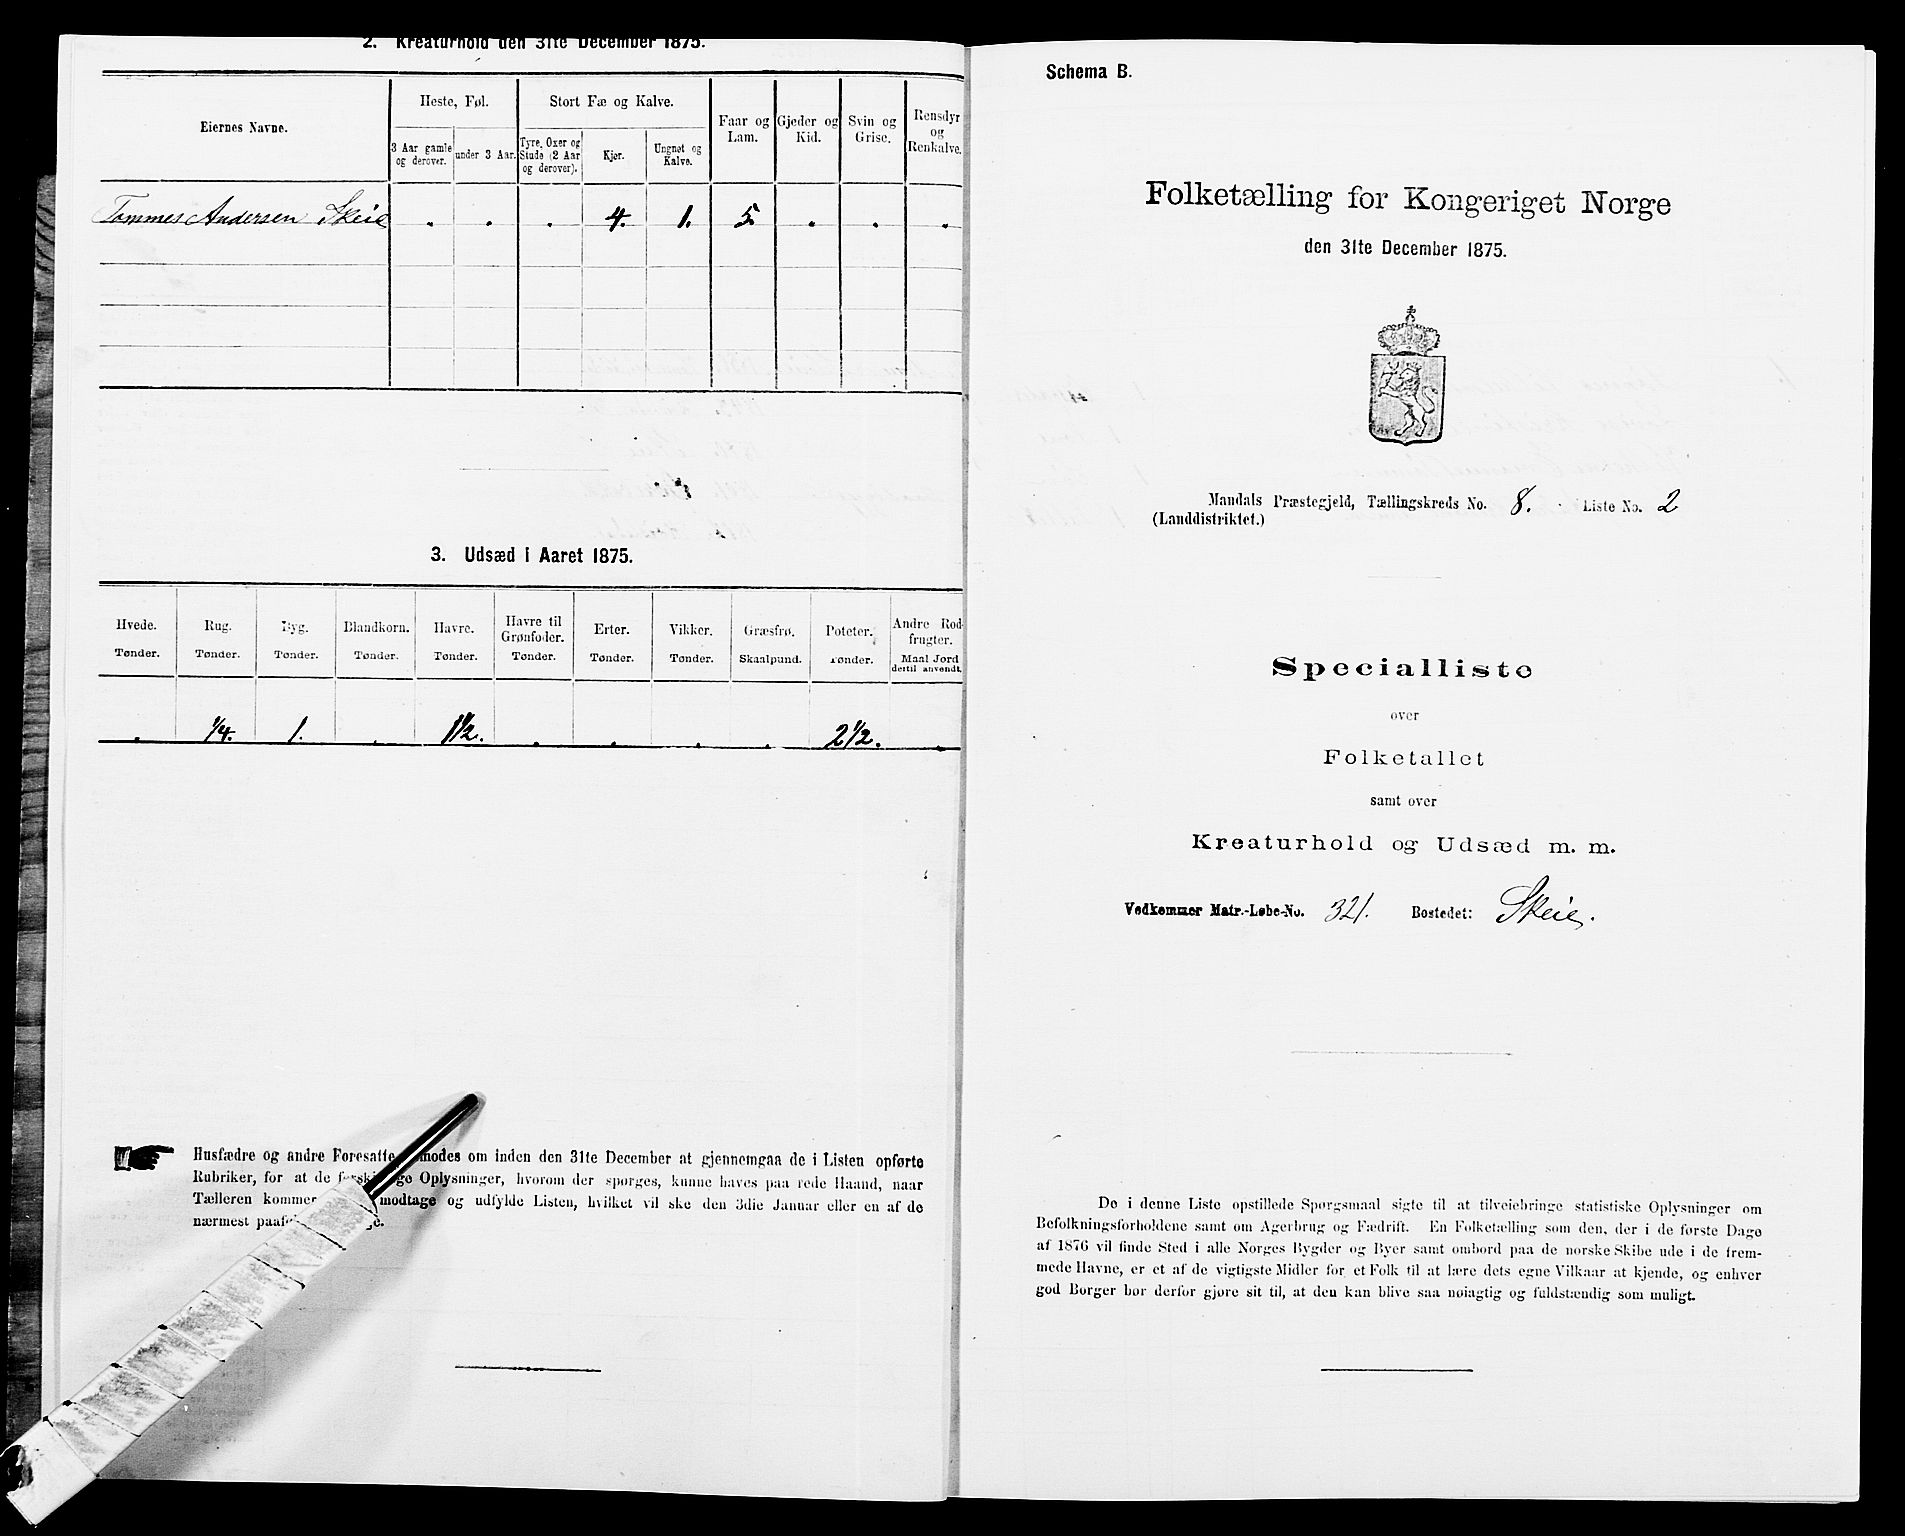 2. Kreaturhold den 31te December 1875.
Eiernes Navne.
Heste, Føl.
Stort Fæ og Kalve.
Faar og Lam.
Gjeder og Kid.
Svin og Grise.
Rensdyr og Renkalve.
3 Aar gamle og derover.
under 3 Aar.
Tyre, Oxer og Stude (2 Aar og derover).
Kjør.
Ungnøt og Kalve.
Tommes Andersen Skeie . . . 4. 1. 5 . . .
3. Udsæd i Aaret 1875.
Hvede. Rug. Byg. Blandkorn. Havre. Havre til Grønfoder. Erter. Vikker. Græsfrø. Poteter. Andre Rodfrugter.
Tønder. Tønder. Tønder. Tønder. Tønder. Tønder. Tønder. Tønder. Skaalpund. Tønder. Maal Jord dertil anvendt.
. 1/4. 1. . 1 1/2. . . . . 2 1/2. .
Husfædre og andre Foresatte modes om inden den 31te December at gjennemgaa de i Listen opførte
Rubriker, for at de Oplysninger, hvorom der spørges, kunne haves paa rede Haand, naar
Tælleren kommer modtage og udfylde Listen, hvilket vil ske den 3die Januar eller en af de
nærmest
Schema B.
Folketælling for Kongeriget Norge
den 31te December 1875.
Mandals Præstegjeld, Tællingskreds No. 8. Liste No. 2
(Landdistriktet.)
Specialliste
over
Folketallet
samt over
Kreaturhold og Udsæd m. m.
Vedkommer Matr.-Løbe-No. 321. Bostedet: Skeie.
De i denne Liste opstillede Spørgsmaal sigte til at tilveiebringe statistiske Oplysninger om
Befolkningsforholdene samt om Agerbrug og Fædrift. En Folketælling som den, der i de første Dage
af 1876 vil finde Sted i alle Norges Bygder og Byer samt ombord paa de norske Skibe ude i de frem-
mede Havne, er et af de vigtigste Midler for et Folk til at lære dets egne Vilkaar at kjende, og enhver
god Borger bør derfor gjøre sit til, at den kan blive saa nøiagtig og fuldstændig som muligt.